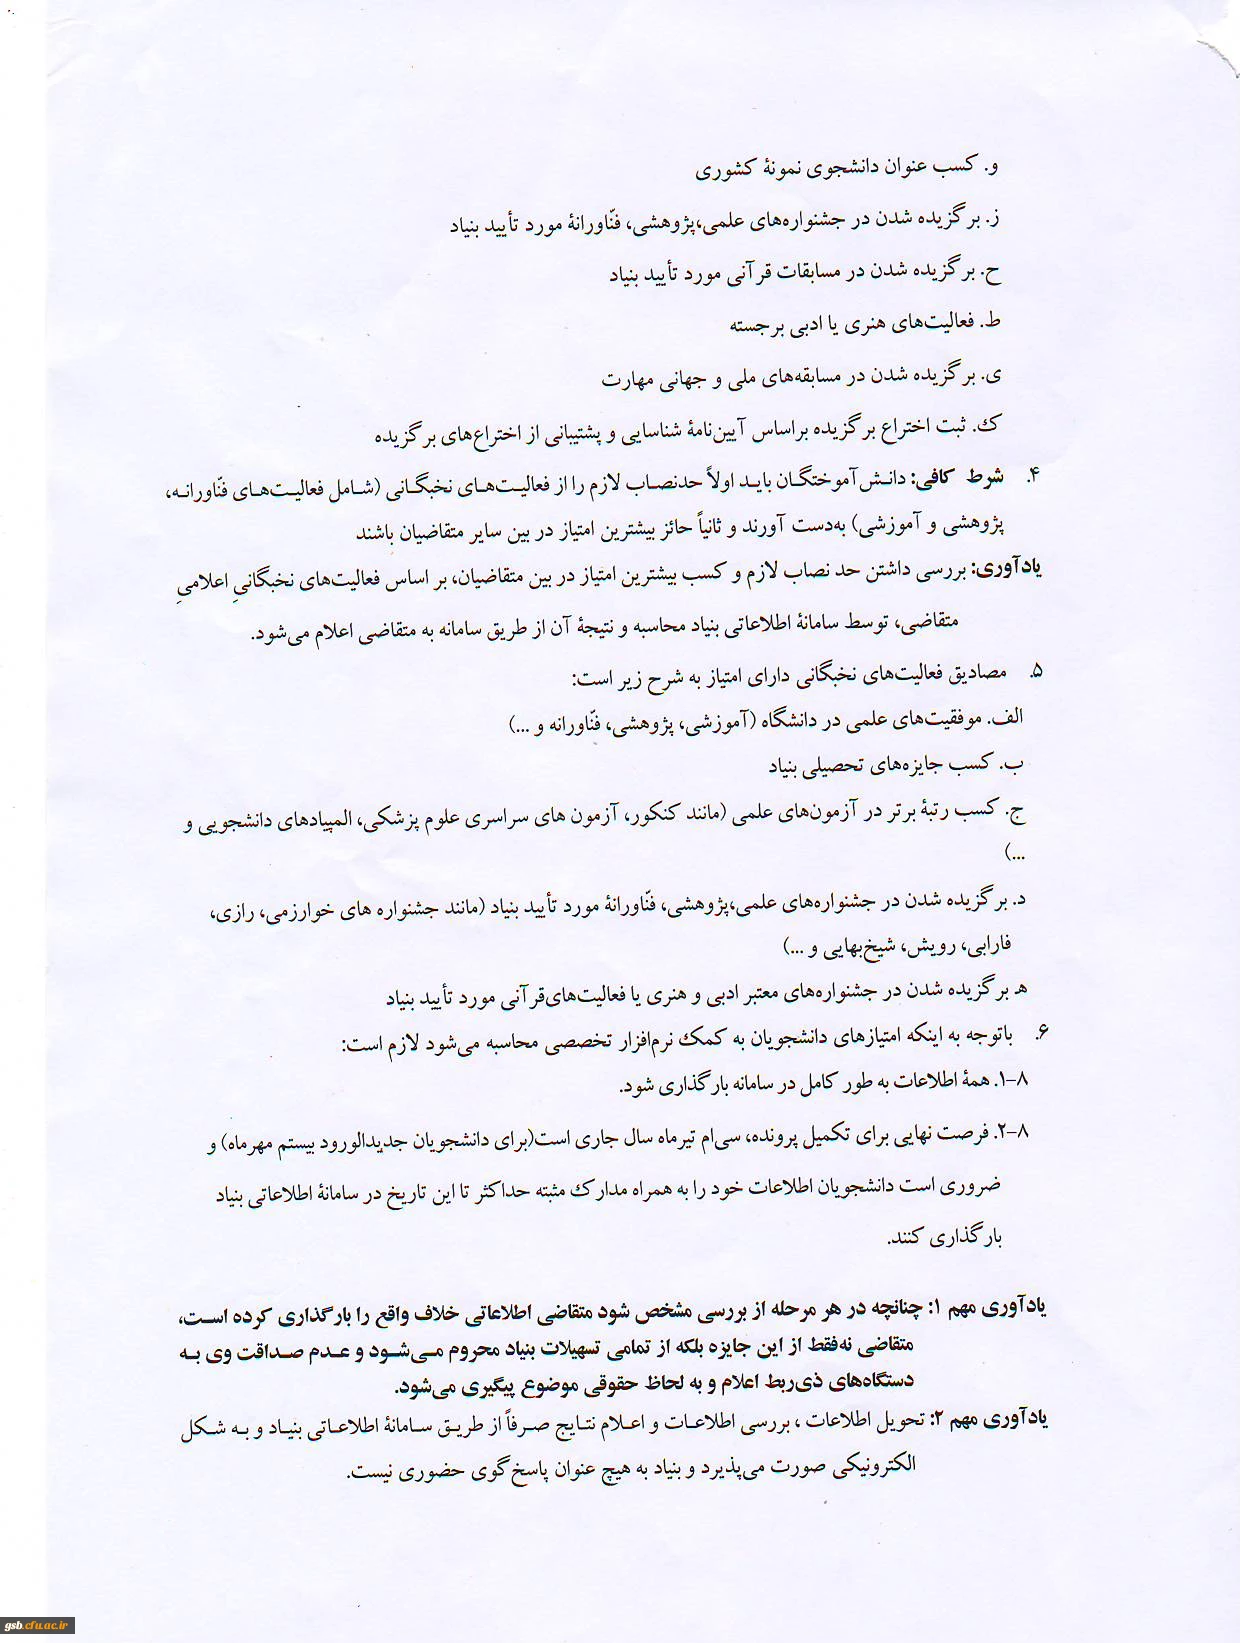 و. کسب عنوان دانشجوی نمونهٔ کشوری
ز. برگزیده شدن در جشنواره‌های علمی،پژوهشی، فنّاورانهٔ مورد تأیید بنیاد
ح. برگزیده شدن در مسابقات قرآنی مورد تأیید بنیاد
ط. فعالیت‌های هنری یا ادبی برجسته
ی. برگزیده شدن در مسابقه‌های ملی و جهانی مهارت
ک. ثبت اختراع برگزیده براساس آیین‌نامهٔ شناسایی و پشتیبانی از اختراع‌های برگزیده
۴. شرط کافی: دانش‌آموختگان باید اولاً حدنصاب لازم را از فعالیت‌های نخبگانی (شامل فعالیت‌های فنّاورانه،
پژوهشی و آموزشی) به‌دست آورند و ثانیاً حائز بیشترین امتیاز در بین سایر متقاضیان باشند
یادآوری: بررسی داشتن حد نصاب لازم و کسب بیشترین امتیاز در بین متقاضیان، بر اساس فعالیت‌های نخبگانیِ اعلامیِ
متقاضی، توسط سامانهٔ اطلاعاتی بنیاد محاسبه و نتیجهٔ آن از طریق سامانه به متقاضی اعلام می‌شود.
۵. مصادیق فعالیت‌های نخبگانی دارای امتیاز به شرح زیر است:
الف. موفقیت‌های علمی در دانشگاه (آموزشی، پژوهشی، فنّاورانه و ...)
ب. کسب جایزه‌های تحصیلی بنیاد
ج. کسب رتبهٔ برتر در آزمون‌های علمی (مانند کنکور، آزمون های سراسری علوم پزشکی، المپیادهای دانشجویی و
...)
د. برگزیده شدن در جشنواره‌های علمی،پژوهشی، فنّاورانهٔ مورد تأیید بنیاد (مانند جشنواره های خوارزمی، رازی،
فارابی، رویش، شیخ‌بهایی و ...)
هـ برگزیده شدن در جشنواره‌های معتبر ادبی و هنری یا فعالیت‌های‌قرآنی مورد تأیید بنیاد
۶. باتوجه به اینکه امتیازهای دانشجویان به کمک نرم‌افزار تخصصی محاسبه می‌شود لازم است:
۸-۱. همهٔ اطلاعات به طور کامل در سامانه بارگذاری شود.
۸-۲. فرصت نهایی برای تکمیل پرونده، سی‌ام تیرماه سال جاری است(برای دانشجویان جدیدالورود بیستم مهرماه) و
ضروری است دانشجویان اطلاعات خود را به همراه مدارک مثبته حداکثر تا این تاریخ در سامانهٔ اطلاعاتی بنیاد
بارگذاری کنند.
یادآوری مهم ۱: چنانچه در هر مرحله از بررسی مشخص شود متقاضی اطلاعاتی خلاف واقع را بارگذاری کرده است،
متقاضی نه‌فقط از این جایزه بلکه از تمامی تسهیلات بنیاد محروم می‌شود و عدم صداقت وی به
دستگاه‌های ذی‌ربط اعلام و به لحاظ حقوقی موضوع پیگیری می‌شود.
یادآوری مهم ۲: تحویل اطلاعات ، بررسی اطلاعات و اعلام نتایج صرفاً از طریق سامانهٔ اطلاعاتی بنیاد و به شکل
الکترونیکی صورت می‌پذیرد و بنیاد به هیچ عنوان پاسخ‌گوی حضوری نیست.
gsb.cfu.ac.ir